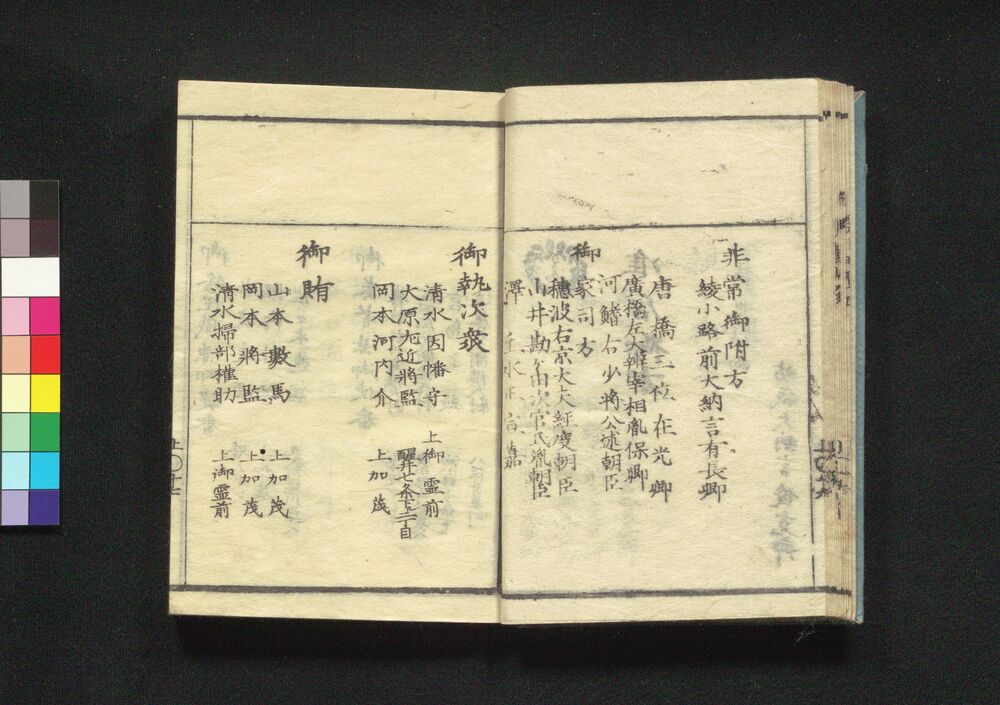 非常御附方
綾小路前大納言有長卿
唐橋三位在光卿
廣橋左大辨宰相胤保卿
河鰭右少將公述朝臣
御家司方
穂波右京大夫經度朝臣
山井勘ケ由次官氏胤朝臣
澤主水正宣嘉
御執次衆
清水因幡守 上御霊前
大原左近將監 醒井七条下ル二丁目
岡本河内介 上加茂
御賄
山本數馬 上加茂
岡本將監 上加茂
清水掃部権助 上御霊前
上〇十七